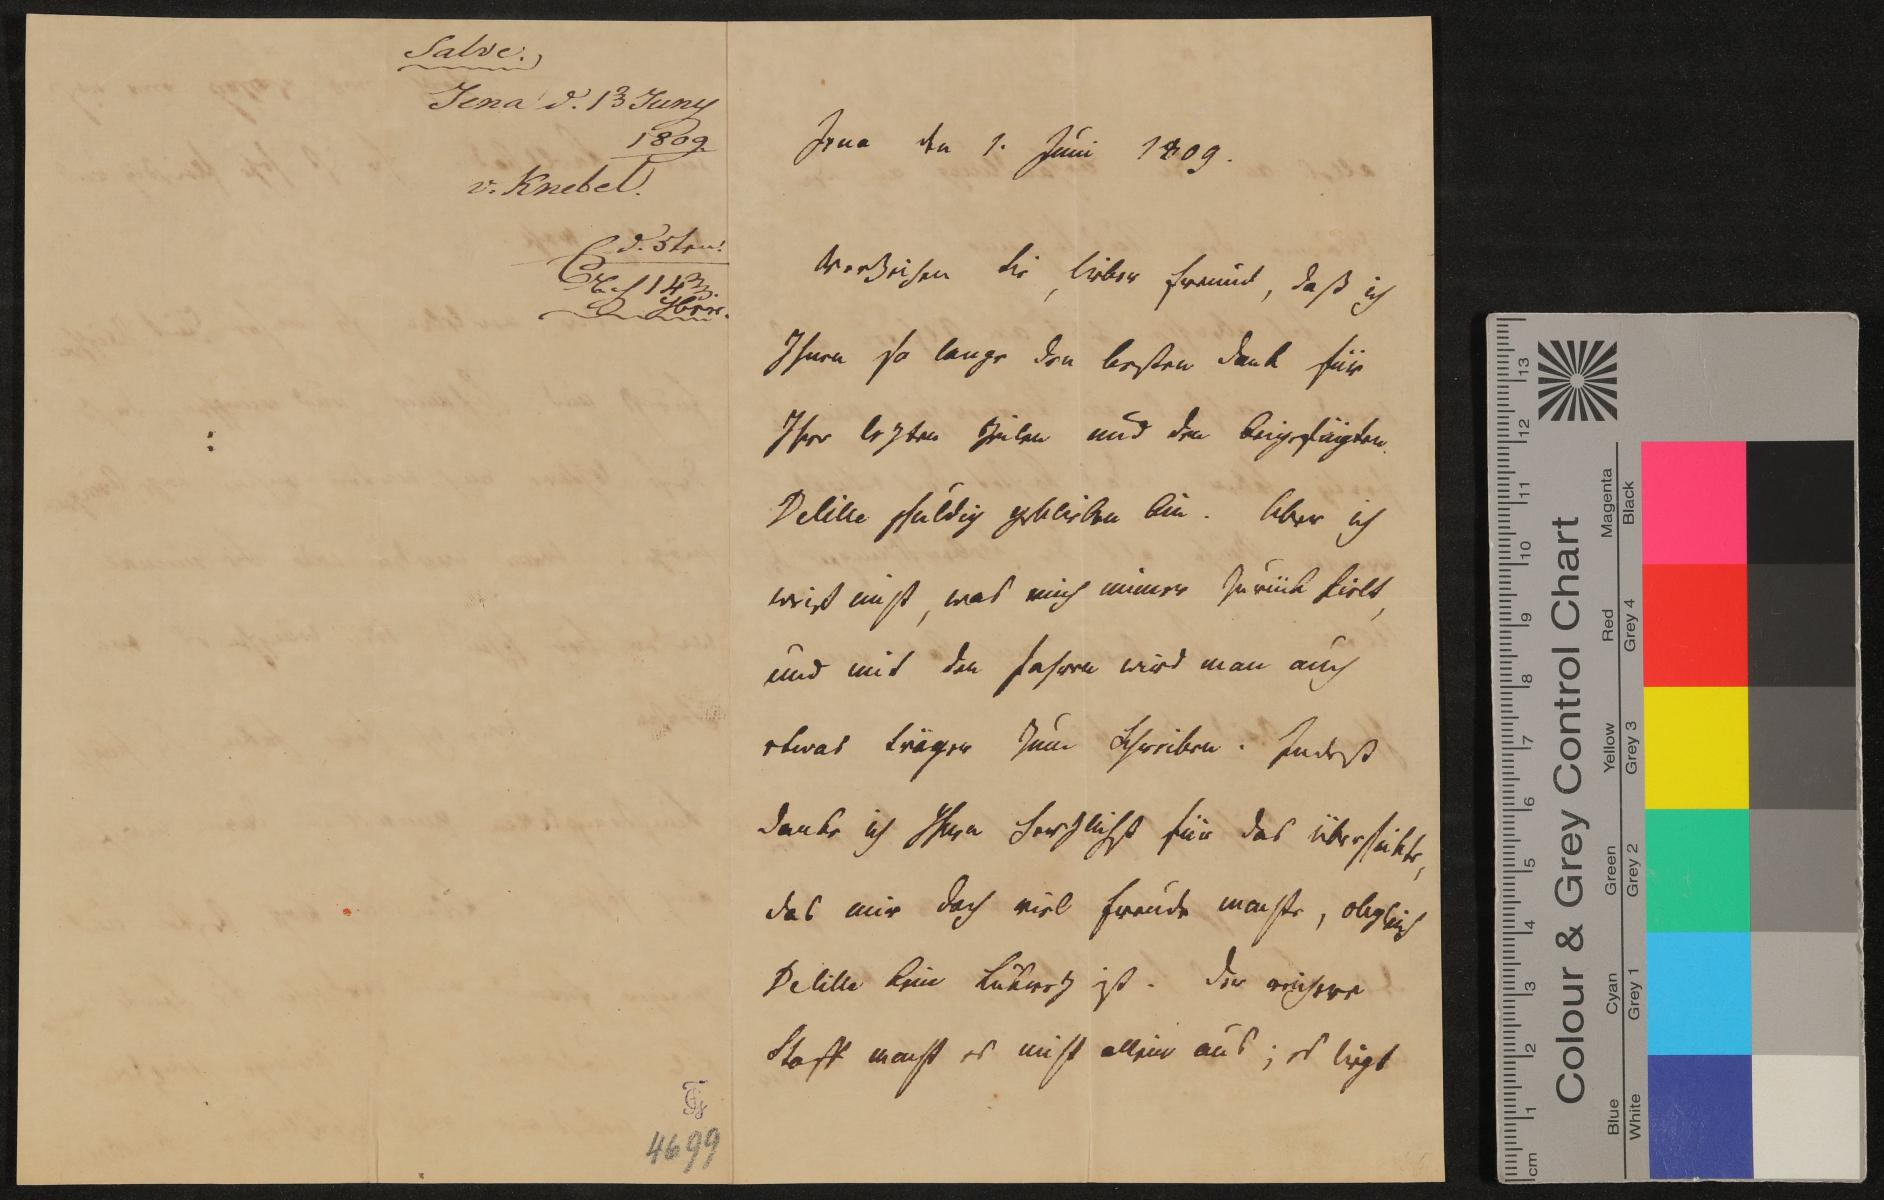 Salve.
Jena d. 13 Juny
1809.
v. Knebel.
d. 5ten
143.
4699
Jena den 1. Juni 1809.
Verzeihen Sie, lieber Freund, daß ich
Ihnen so lange den besten Dank für
Ihre lezten Zeilen und den beigefügten
Delille schuldig geblieben bin. Aber ich
weis nicht, was mich immer zurück hielt,
und mit den Jahren wird man auch
etwas träger zum Schreiben. Indeß
danke ich Ihnen herzlichst für das überschickte,
das mir doch viel Freude machte, obgleich
Delille kein Lukrez ist. Der reichere
Stoff macht es nicht allein aus; es liegt
Colour & Grey Control Chart
Blue Cyan Green Yellow Red Magenta
White Grey 1 Grey 2 Grey 3 Grey 4 Black
cm 1 2 3 4 5 6 7 8 9 10 11 12 13